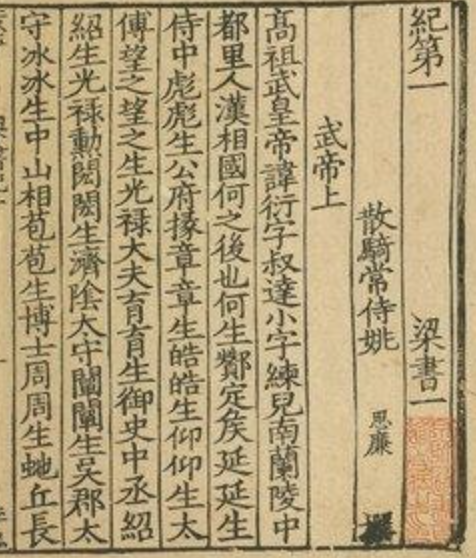 紀第一 梁書一
散騎常侍姚 思廉 撰
武帝上
髙祖武皇帝諱衍字叔達小字練兒南蘭陵中
都里人漢相國何之後也何生酇定侯延延生
侍中彪彪生公府掾章章生皓皓生仰仰生太
傅望之望之生光祿大夫育育生御史中丞紹
紹生光祿勳閎閎生濟陰太守闡闡生吴郡太
守冰冰生中山相苞苞生博士周周生虵丘長